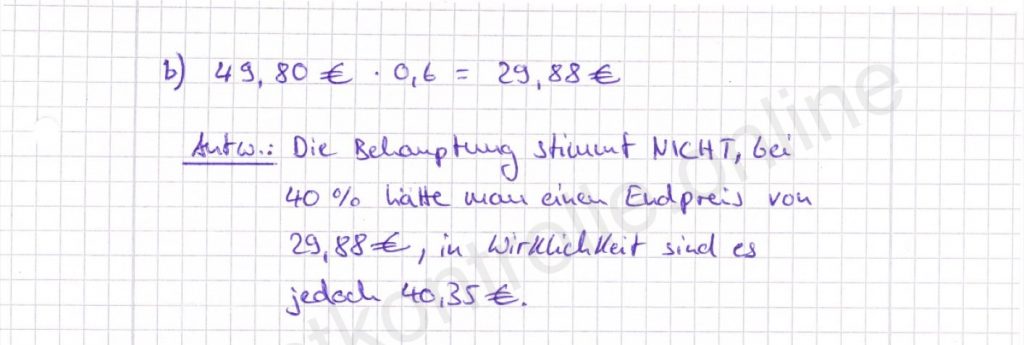 b) 49,80 € · 0,6 = 29,88 €
Antw.: Die Behauptung stimmt NICHT, bei
40 % hätte man einen Endpreis von
29,88 €, in Wirklichkeit sind es
jedoch 40,35 €.